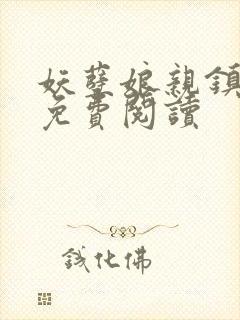 妖孽娘親鎮
免費閱讀
鉞化佛